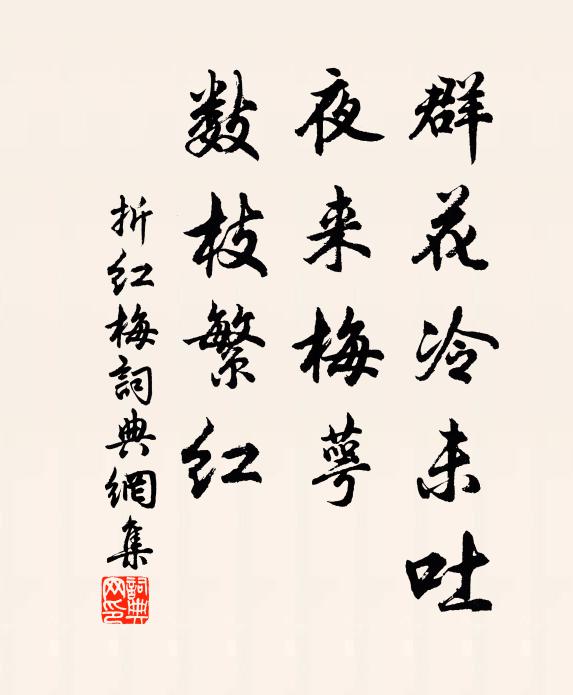 群花冷未吐
夜来梅萼
数枝繁红
折红梅詞典網集
詞典网印